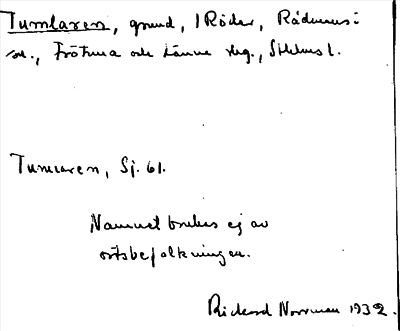 Tumlaren, grund, 1 Röder, Rådmansö
sn., Frötuna och Länna skg., Sthlms l.
Tumlaren, Sj. 61.
Namnet brukas ej av
ortsbefolkningen.
Rickard Norrman 1932.